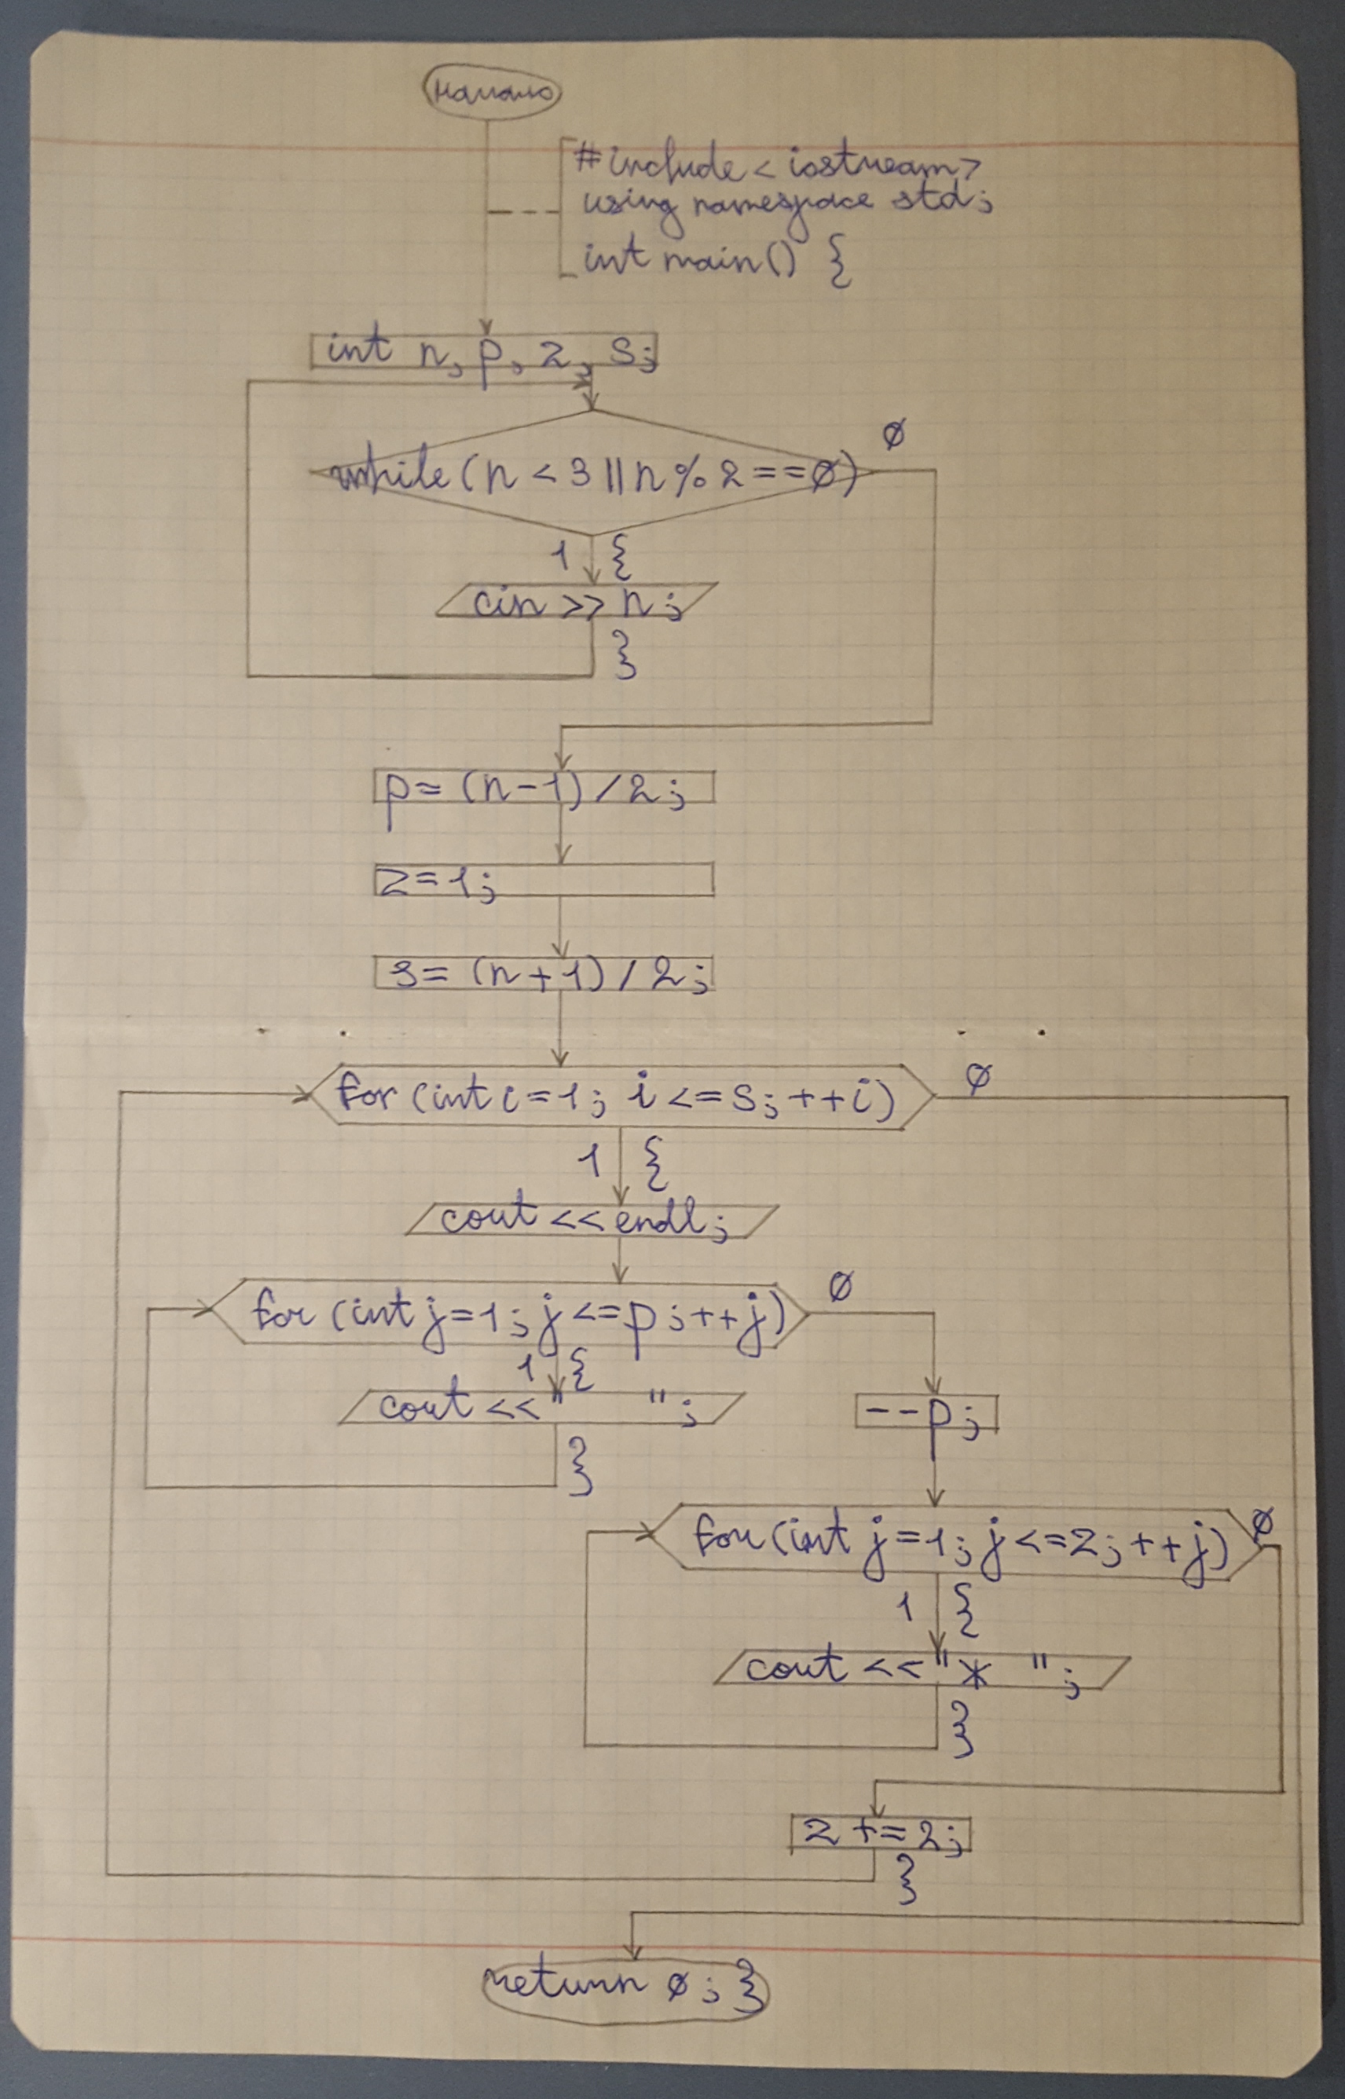 начало
#include <iostream>
using namespace std;
int main() {
int n, p, z, s;
while (n < 3 || n % 2 == 0)
0
1 {
cin >> n;
}
p = (n-1) / 2;
z = 1;
s = (n+1) / 2;
for (int i=1; i <= s; ++i)
0
1 {
cout << endl;
for (int j=1; j <= p; ++j)
0
1 {
cout << "  ";
--p;
}
for (int j=1; j <= z; ++j)
0
1 {
cout << "* ";
}
z += 2;
}
return 0; }